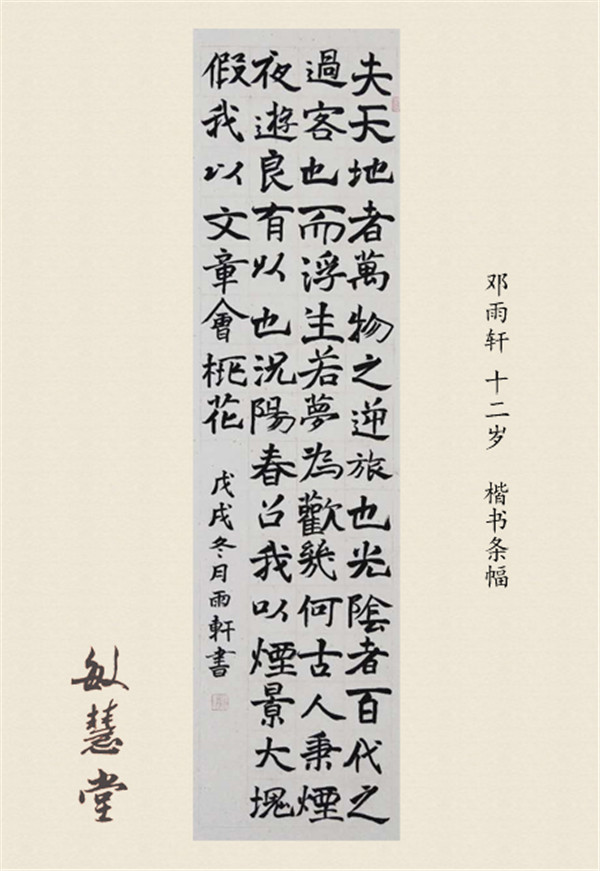 邓雨轩 十二岁 楷书条幅
夫天地者萬物之逆旅也光陰者百代之
過客也而浮生若夢為歡幾何古人秉煙
夜遊良有以也況陽春召我以煙景大塊
假我以文章會桃花
戊戌冬月雨軒書
敏慧堂